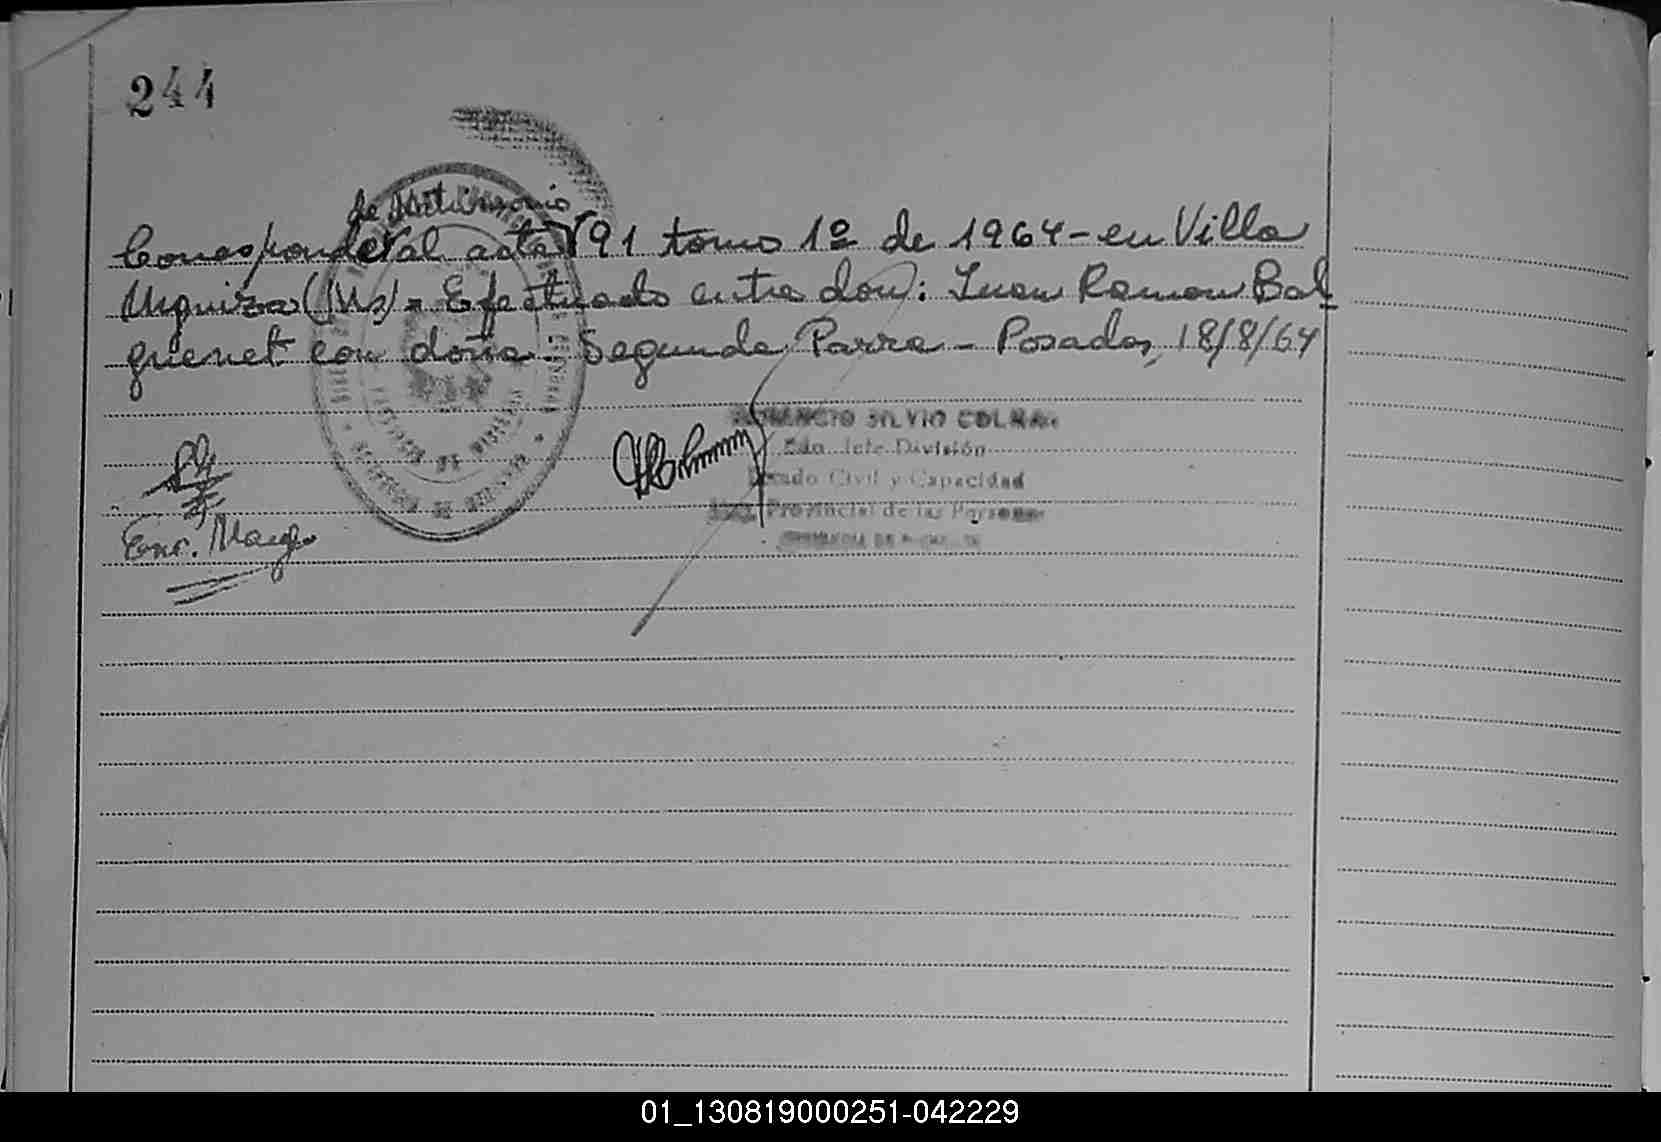 244
de Matrimonio
Corresponde al acta 91 tomo 1º de 1964 - en Villa
Urquiza (Ms) = Efectuado entre don: Juan Ramon Bal
guenet con doña: Segunda Parra - Posadas, 18/8/64
SILVIO COLMAN
Jefe División
Estado Civil y Capacidad
Provincial de las Personas
Enc. Marg.
01_130819000251-042229